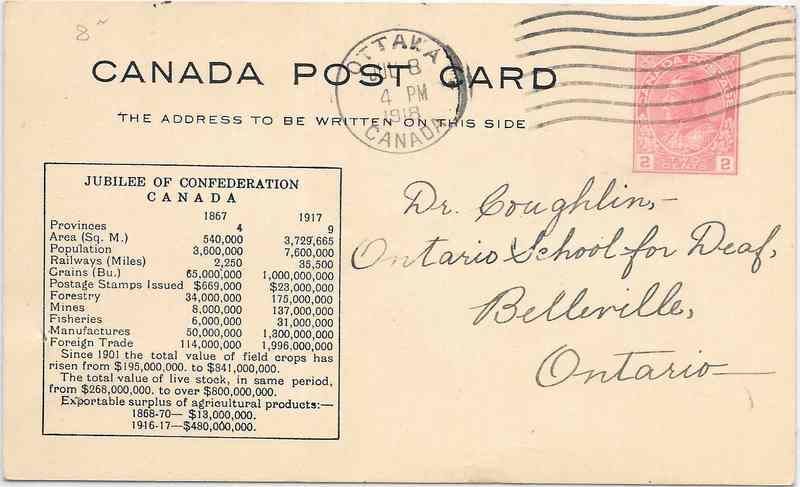 8
CANADA POST CARD
THE ADDRESS TO BE WRITTEN ON THIS SIDE
OTTAWA
8
4 PM
1918
CANADA
CANADA POSTAGE
2 CENTS 2
JUBILEE OF CONFEDERATION
CANADA
1867 1917
Provinces 4 9
Area (Sq. M.) 540,000 3,729,665
Population 3,600,000 7,600,000
Railways (Miles) 2,250 35,500
Grains (Bu.) 65,000,000 1,000,000,000
Postage Stamps Issued $669,000 $23,000,000
Forestry 34,000,000 175,000,000
Mines 8,000,000 137,000,000
Fisheries 6,000,000 31,000,000
Manufactures 50,000,000 1,300,000,000
Foreign Trade 114,000,000 1,996,000,000
Since 1901 the total value of field crops has
risen from $195,000,000. to $841,000,000.
The total value of live stock, in same period,
from $268,000,000. to over $800,000,000.
Exportable surplus of agricultural products:—
1868-70— $13,000,000.
1916-17—$480,000,000.
Dr. Coughlin,-
Ontario School for Deaf,
Belleville,
Ontario—